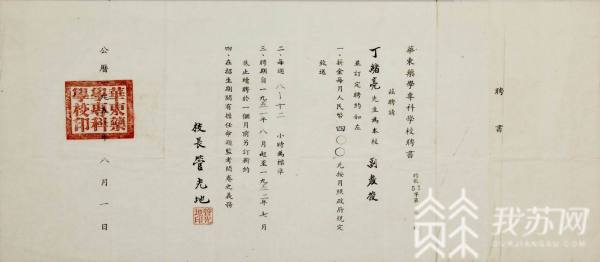 聘書
華東藥學專科學校聘書
茲聘請
丁緒亮先生為本校 副教授
並訂定聘約如左
一．薪金每月人民幣 四〇〇 元按月照政府規定
致送
二．每週 八—十二 小時為標準
三．聘期自一九五一年八月起至一九五二年七月
休止續聘於一個月前另訂新約
四．在招生期間有擔任命題監考閱卷之義務
校長 管光地
管光地印
公曆一九五一年八月一日
華東藥學專科學校印
我苏网
OURJIANGSU.COM